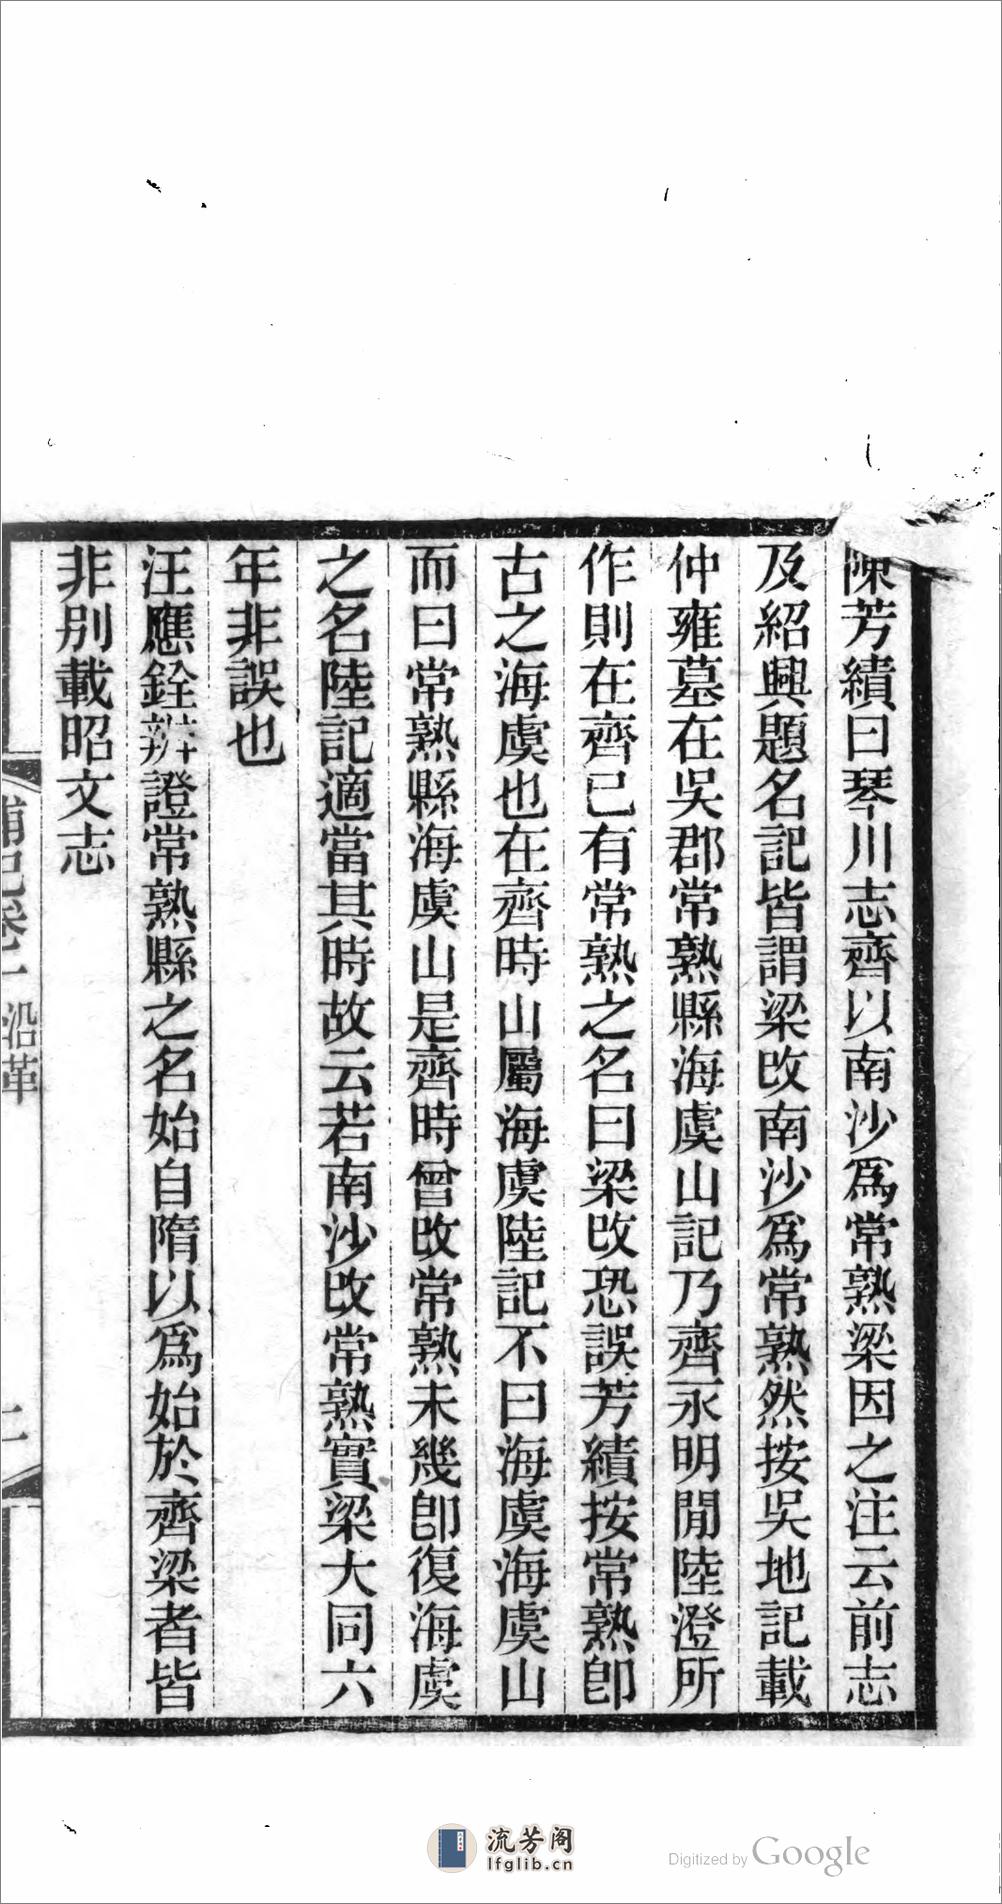 陳芳績曰琴川志齊以南沙爲常熟梁因之注云前志
及紹興題名記皆謂梁改南沙爲常熟然按吳地記載
仲雍墓在吳郡常熟縣海虞山記乃齊永明閒陸澄所
作則在齊已有常熟之名曰梁改恐誤芳績按常熟卽
古之海虞也在齊時山屬海虞陸記不曰海虞海虞山
而曰常熟縣海虞山是齊時曾改常熟未幾卽復海虞
之名陸記適當其時故云若南沙改常熟實梁大同六
年非誤也
汪應銓辨證常熟縣之名始自隋以爲始於齊梁者皆
非別載昭文志
卷一 沿革
流芳阁
lfglib.cn
Digitized by Google